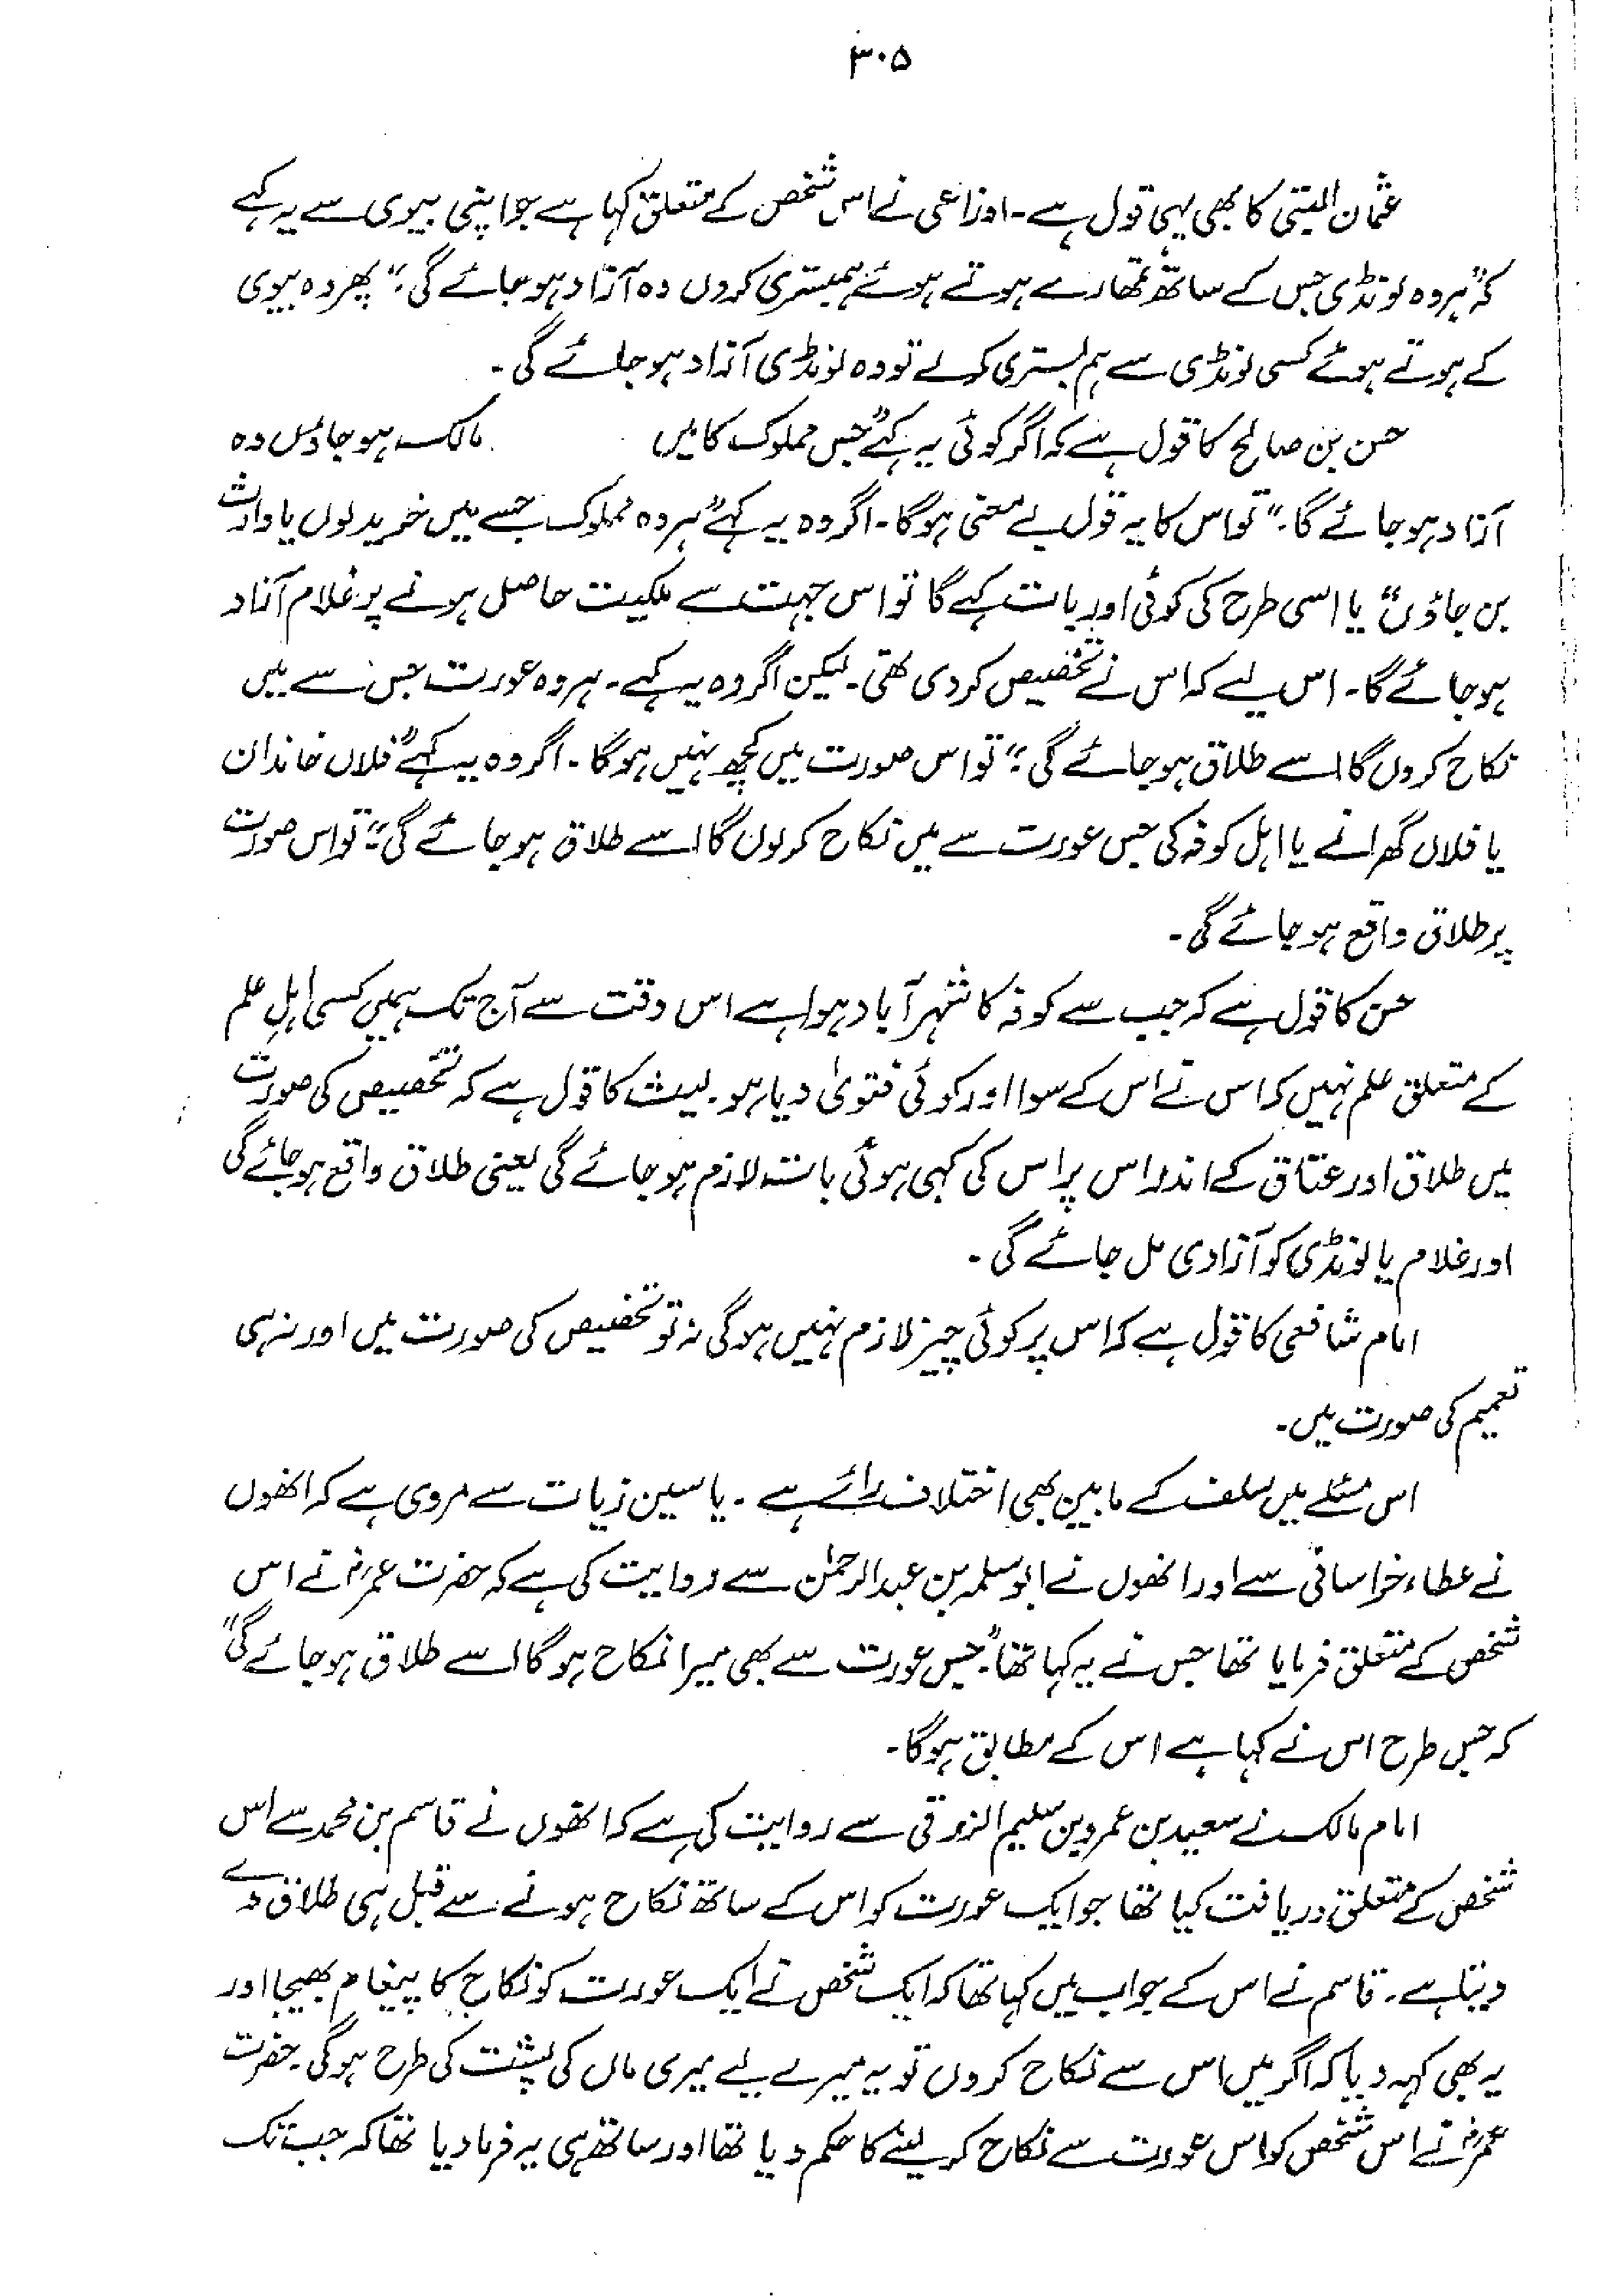 ۳۰۵
عثمان البتی کا بھی یہی قول ہے۔ اوزاعی نے اس شخص کے متعلق کہا ہے جو اپنی بیوی سے یہ کہے
کہ "ہر وہ لونڈی جس کے ساتھ تمھارے ہوتے ہوئے ہمبستری کروں وہ آزاد ہو جائے گی؛" پھر وہ بیوی
کے ہوتے ہوئے کسی لونڈی سے ہم بستری کرلے تو وہ لونڈی آزاد ہو جائے گی۔
حسن بن صالح کا قول ہے کہ اگر کوئی یہ کہے "جس مملوک کا میں مالک ہو جاؤں وہ
آزاد ہو جائے گا۔" تو اس کا یہ قول بے معنی ہوگا۔ اگر وہ یہ کہے "ہر وہ مملوک جسے میں خرید لوں یا وارث
بن جاؤں" یا اسی طرح کی کوئی اور بات کہے گا تو اس جہت سے ملکیت حاصل ہونے پر غلام آزاد
ہو جائے گا۔ اس لیے کہ اس نے تخصیص کر دی تھی۔ لیکن اگر وہ یہ کہے۔ ہر وہ عورت جس سے میں
نکاح کروں گا اسے طلاق ہو جائے گی؛" تو اس صورت میں کچھ نہیں ہوگا۔ اگر وہ یہ کہے "فلاں خاندان
یا فلاں گھرانے یا اہل کوفہ کی جس عورت سے میں نکاح کرلوں گا اسے طلاق ہو جائے گی؛" تو اس صورت
پر طلاق واقع ہو جائے گی۔
حسن کا قول ہے کہ جب سے کوفہ کا شہر آباد ہوا ہے اس وقت سے آج تک ہمیں کسی اہلِ علم
کے متعلق علم نہیں کہ اس نے اس کے سوا اور کوئی فتویٰ دیا ہو۔ لیث کا قول ہے کہ تخصیص کی صورت
میں طلاق اور عتاق کے اندر اس پر اس کی کہی ہوئی بات لازم ہو جائے گی یعنی طلاق واقع ہو جائے گی
اور غلام یا لونڈی کو آزادی مل جائے گی۔
امام شافعی کا قول ہے کہ اس پر کوئی چیز لازم نہیں ہوگی نہ تو تخصیص کی صورت میں اور نہ ہی
تعمیم کی صورت میں۔
اس مسئلے میں سلف کے مابین بھی اختلاف رائے ہے۔ یاسین زیات سے مروی ہے کہ انھوں
نے عطاء خراسانی سے اور انھوں نے ابو سلمہ بن عبدالرحمٰن سے روایت کی ہے کہ حضرت عمرؓ نے اس
شخص کے متعلق فرمایا تھا جس نے یہ کہا تھا "جس عورت سے بھی میرا نکاح ہوگا اسے طلاق ہو جائے گی"
کہ جس طرح اس نے کہا ہے اس کے مطابق ہوگا۔
امام مالک نے سعید بن عمرو بن سلیم الزرقی سے روایت کی ہے کہ انھوں نے قاسم بن محمد سے اس
شخص کے متعلق دریافت کیا تھا جو ایک عورت کو اس کے ساتھ نکاح ہونے سے قبل ہی طلاق دے
دیتا ہے۔ قاسم نے اس کے جواب میں کہا تھا کہ ایک شخص نے ایک عورت کو نکاح کا پیغام بھیجا اور
یہ بھی کہہ دیا کہ اگر میں اس سے نکاح کروں تو یہ میرے لیے میری ماں کی پشت کی طرح ہوگی۔ حضرت
عمرؓ نے اس شخص کو اس عورت سے نکاح کرلینے کا حکم دیا تھا اور ساتھ ہی یہ فرما دیا تھا کہ جب تک